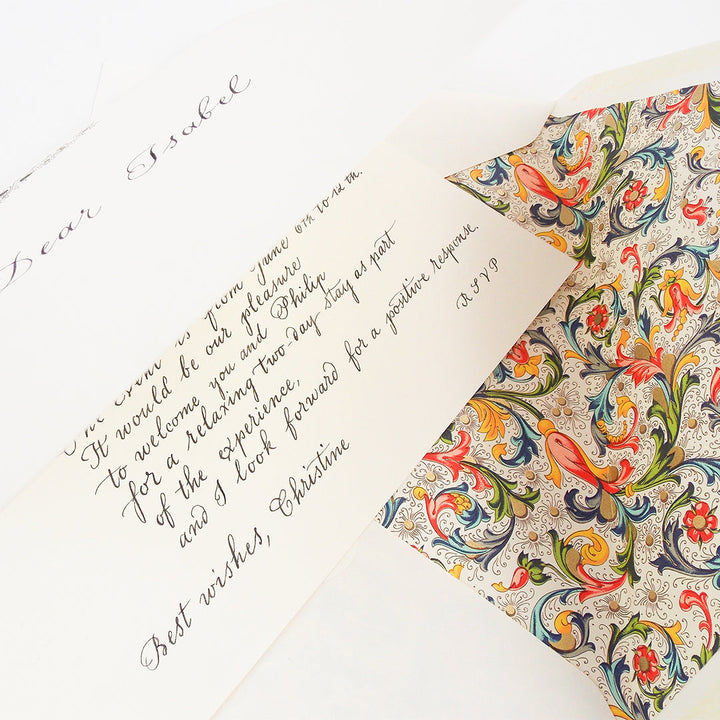 Dear Isabel
The Event is from June 6th to 12th.
It would be our pleasure
to welcome you and Philip
for a relaxing two-day stay as part
of the experience,
and I look forward for a positive response.
RSVP
Best wishes, Christine